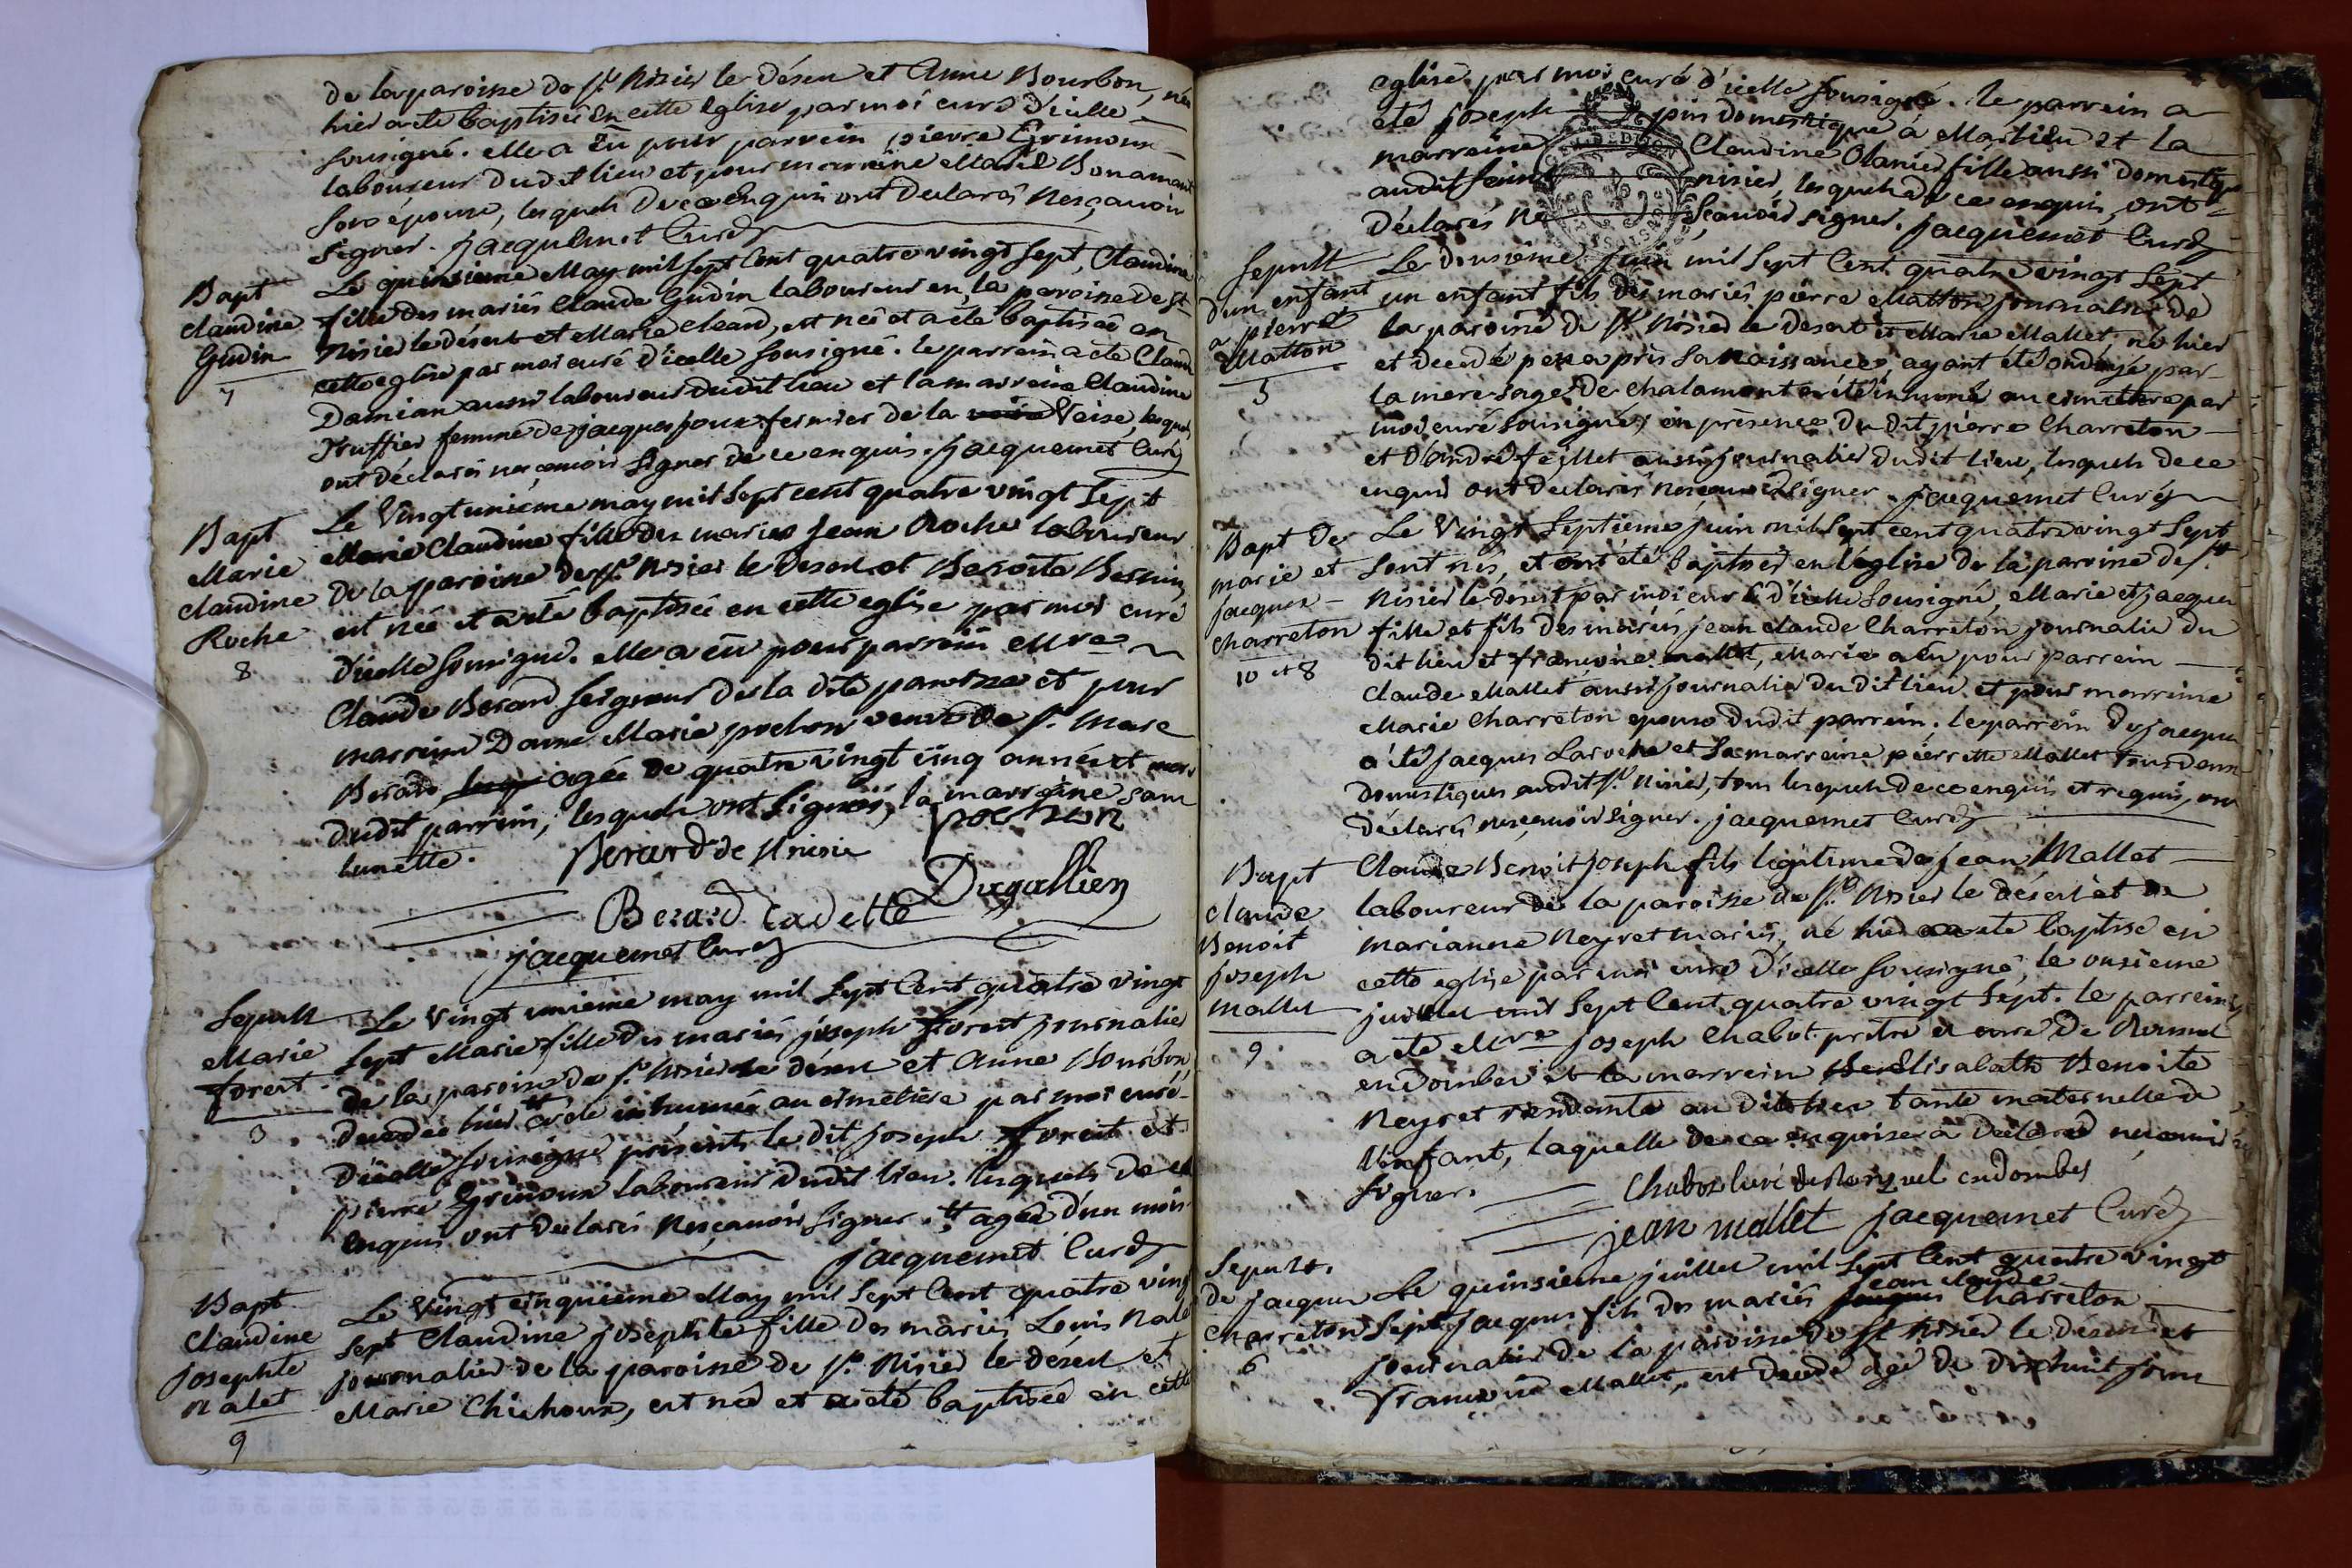 de la paroisse de st. Nisier le désert et Anne Bourbon, née
hier a été baptisée en cette eglise par moi curé d'icelle
sousigné. elle a eü pour parrein pierre Grimoux
laboureur dudit lieu et pour marreine Marie Bonamant
son épouse, lesquels de ce enquis ont declarés nesçavoir
signer. jacquemet Curé
Bapt
claudine
Gudin
7
Le quinsieme May mil sept cent quatre vingt sept, Claudine
fille des mariés Claude Gudin laboureur en la paroisse de St
Nisier le désert et Marie cleand, est née et a été baptisée en
cette eglise par moi curé d'icelle sousigné. le parrein a été Claude
Damian aussi laboureur dudit lieu et la marreine Claudine
Truffier femme de jacques joux fermier de la Vaise, lesquels
ont déclarés nesçavoir signer de ce enquis. jacquemet Curé
Bapt
Marie
claudine
Roche
8
Le Vingt unieme may mil sept cent quatre vingt sept
Marie Claudine fille des mariés Jean Roche laboureur
de la paroisse de st. Nisier le desert et Benoite Bernin,
est née et a été baptisée en cette eglise par moi curé
d'icelle sousigné. elle a eü pour parrein Mre
Claude Berard seigneur de la dite paroisse et pour
marreine Dame Marie pochon veuve de sr. Marc
Berard agée de quatre vingt cinq années et
dudit parrein, lesquels ont signés, la marreine sans
lunette.
pochon
Berard de st nisier
Dugallien
Berard Cadette
jacquemet Curé
Sepult
Marie
forest
3
Le Vingt unieme may mil sept Cent quatre vingt
sept Marie fille des mariés joseph forest journalier
de la paroisse de st. Nisier le désert et Anne Bourbon,
decedée hier a été inhumée au cimetiere par moi curé
d'icelle sousigné présents le dit joseph forest et
pierre Grimoux laboureur dudit lieu. lesquels de ce
enquis ont declarés nesçavoir signer. agée d'un mois
jacquemet Curé
Bapt
Claudine
josephte
nalet
9
Le Vingt cinquieme May mil sept Cent quatre vingt
sept Claudine josephte fille des mariés Louis Nalet
journalier de la paroisse de st. Nisier le désert et
Marie Chichoux, est née et a été baptisée en cette
eglise par moi curé d'icelle sousigné. le parrein a
été joseph pin domestique à Marlieu et la
marreine Claudine Olanier fille aussi domestique
audit saint nisier, lesquels de ce enquis, ont
déclarés ne sçavoir signer. jacquemet Curé
Sepult
d'un enfant
a pierre
Matton
5
Le dousième juin mil sept Cent quatre vingt sept
un enfant fils des mariés pierre Matton journalier de
la paroisse de st. Nisier le desert et Marie Mallet, né hier
et decedé peu après sa naissance, ayant été ondoyé par
la mere-sage de chalamont a été inhumé au cimetiere par
moi curé sousigné, en présence du dit pierre Charreton
et d'André feillet aussi journalier dudit lieu, lesquels de ce
enquis ont declarés nesçavoir signer. jacquemet Curé
Bapt de
marie et
jacques
charreton
10 et 8
Le Vingt Septieme juin mil sept cent quatre vingt sept
sont nés, et ont été baptisés en l'eglise de la paroisse de st.
Nisier le desert par moi curé d'icelle sousigné, Marie et jacques
fille et fils des mariés jean claude Charreton journalier du
dit lieu et françoise mallet, Marie a eu pour parrein
Claude Mallet aussi journalier dudit lieu et pour marreine
Marie Charreton epouse dudit parrein. le parrein de jacques
a été jacques Laroche et sa marreine pierrette Mallet tous deux
domestiques audit st. Nisier, tous lesquels de ce enquis et requis, ont
déclarés nesçavoir signer. jacquemet Curé
Bapt
claude
Benoit
joseph
mallet
9
Claude Benoit joseph fils legitime de jean Mallet
laboureur de la paroisse de st. Nisier le désert et de
marianne Neyret mariés, né hier a été baptisé en
cette eglise par moi curé d'icelle sousigné, le onsieme
juillet mil sept Cent quatre vingt sept. le parrein
a été Mre joseph Chabot pretre et curé de
en dombes et la marrein Elisabeth Benoite
Neyret tante maternelle de
l'enfant, laquelle de ce enquise a declaré nesçavoir
signer.
Chabot curé en dombes
jean mallet jacquemet Curé
Sepult.
de jacques
charreton
6
Le quinsieme juillet mil sept Cent quatre vingt
jean claude
sept jacques fils des mariés jacques Charreton
journalier de la paroisse de St Nisier le désert et
françoise Mallet, est decedé agé de dixhuit jours